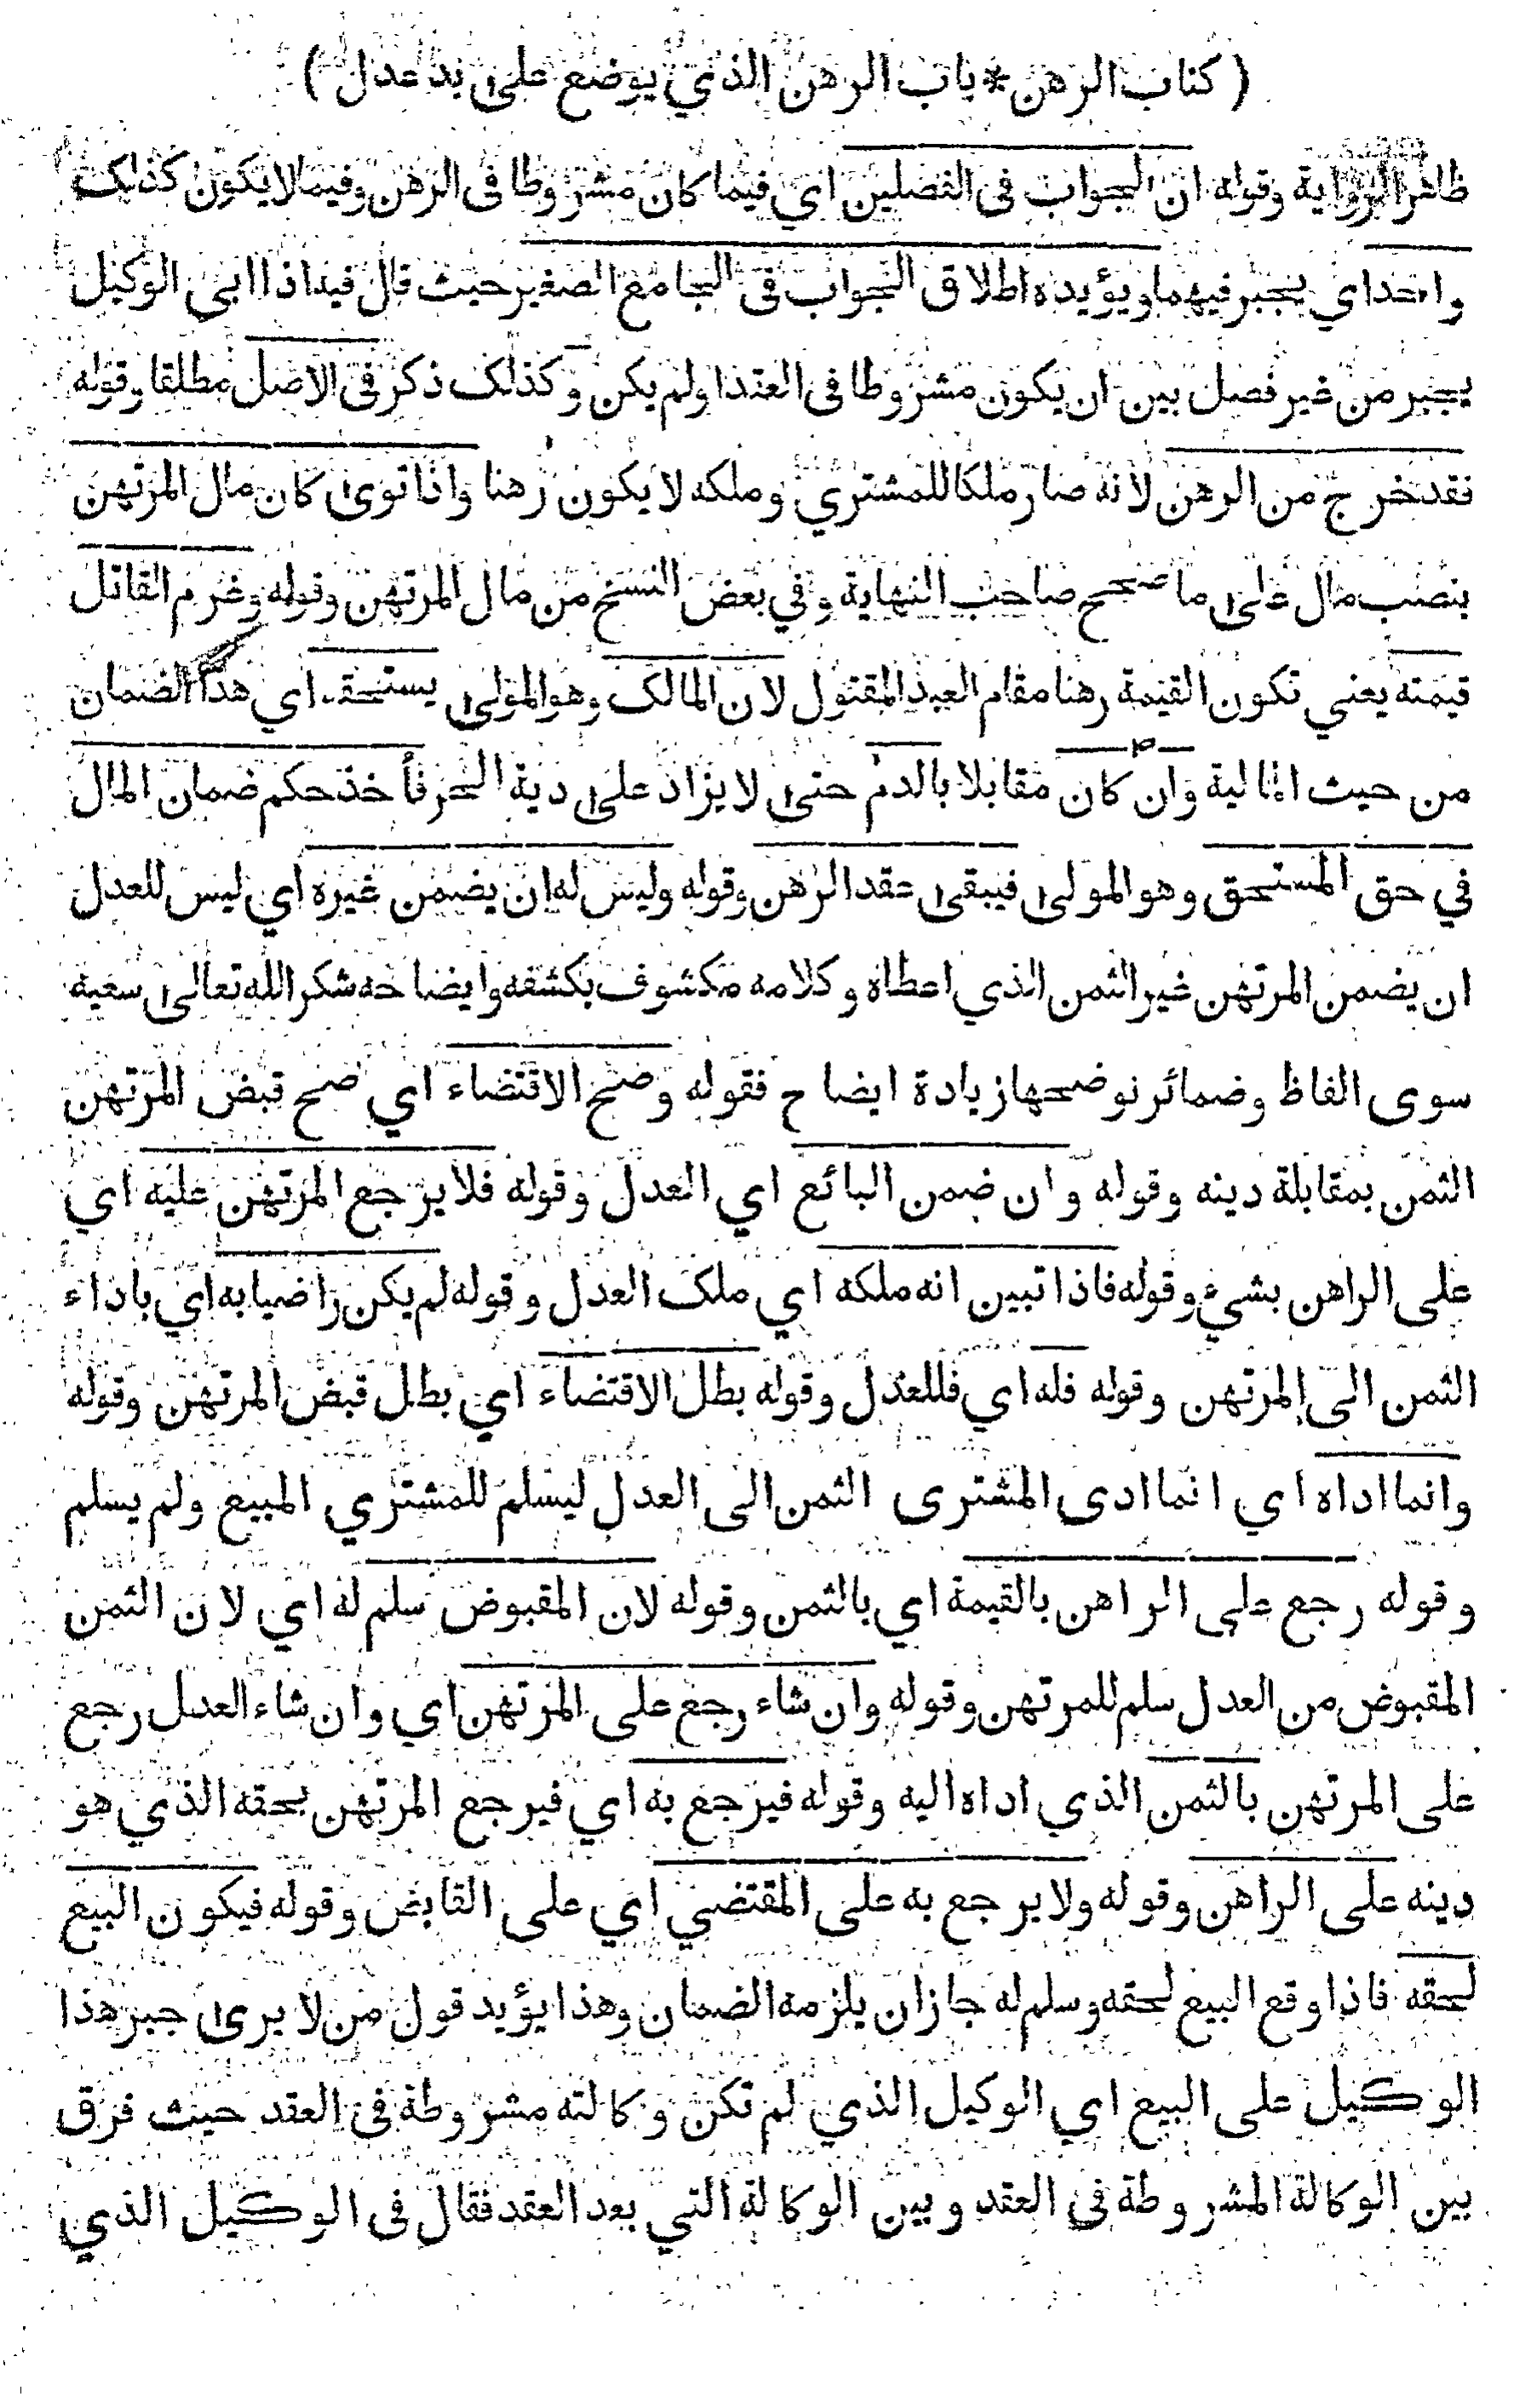 ( كتاب الرهن * باب الرهن الذي يوضع على يد عدل )
ظاهر الرواية وقوله ان الجواب في الفصلين اي فيما كان مشروطا في الرهن وفيما لا يكون كذلك
واحد اي يجبر فيهما ويؤيده اطلاق الجواب في الجامع الصغير حيث قال فيه اذا ابى الوكيل
يجبر من غير فصل بين ان يكون مشروطا في العقد او لم يكن وكذلك ذكر في الاصل مطلقا وقوله
فقد خرج من الرهن لانه صار ملكا للمشتري وملكه لا يكون رهنا واذا توى كان مال المرتهن
بنصب مال على ما صححح صاحب النهاية وفي بعض النسخ من مال المرتهن وقوله وغرم القاتل
قيمته يعني تكون القيمة رهنا مقام العبد المقتول لان المالك وهو المولى يستحقه اي هذا الضمان
من حيث المالية وان كان مقابلا بالدم حتى لا يزاد على دية الحر فأخذ حكم ضمان المال
في حق المستحق وهو المولى فيبقى عقد الرهن وقوله وليس له ان يضمن غيره اي ليس للعدل
ان يضمن المرتهن غير الثمن الذي اعطاه وكلامه مكشوف بكشفه وايضاحه شكر الله تعالى سعيه
سوى الفاظ وضمائر نوضحها زيادة ايضاح فقوله وصح الاقتضاء اي صح قبض المرتهن
الثمن بمقابلة دينه وقوله وان ضمن البائع اي العدل وقوله فلا يرجع المرتهن عليه اي
على الراهن بشيء وقوله فاذا تبين انه ملكه اي ملك العدل وقوله لم يكن راضيا به اي باداء
الثمن الى المرتهن وقوله فله اي فللعدل وقوله بطل الاقتضاء اي بطل قبض المرتهن وقوله
وانما اداه اي انما ادى المشترى الثمن الى العدل ليسلم للمشتري المبيع ولم يسلم
وقوله رجع على الراهن بالقيمة اي بالثمن وقوله لان المقبوض سلم له اي لان الثمن
المقبوض من العدل سلم للمرتهن وقوله وان شاء رجع على المرتهن اي وان شاء العدل رجع
على المرتهن بالثمن الذي اداه اليه وقوله فيرجع به اي فيرجع المرتهن بحقه الذي هو
دينه على الراهن وقوله ولا يرجع به على المقتضي اي على القابض وقوله فيكون البيع
لحقه فاذا وقع البيع لحقه وسلم له جاز ان يلزمه الضمان وهذا يؤيد قول من لا يرى جبر هذا
الوكيل على البيع اي الوكيل الذي لم تكن وكالته مشروطة في العقد حيث فرق
بين الوكالة المشروطة في العقد وبين الوكالة التي بعد العقد فقال في الوكيل الذي